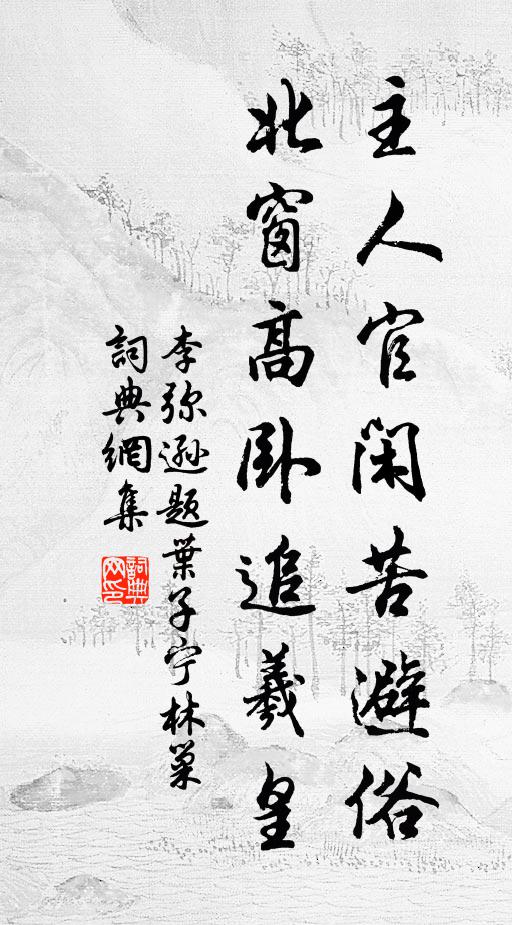 主人官閑苦避俗
北窗高卧追羲皇
李弥遜题葉子宁林巢
詞典網集
詞典网印